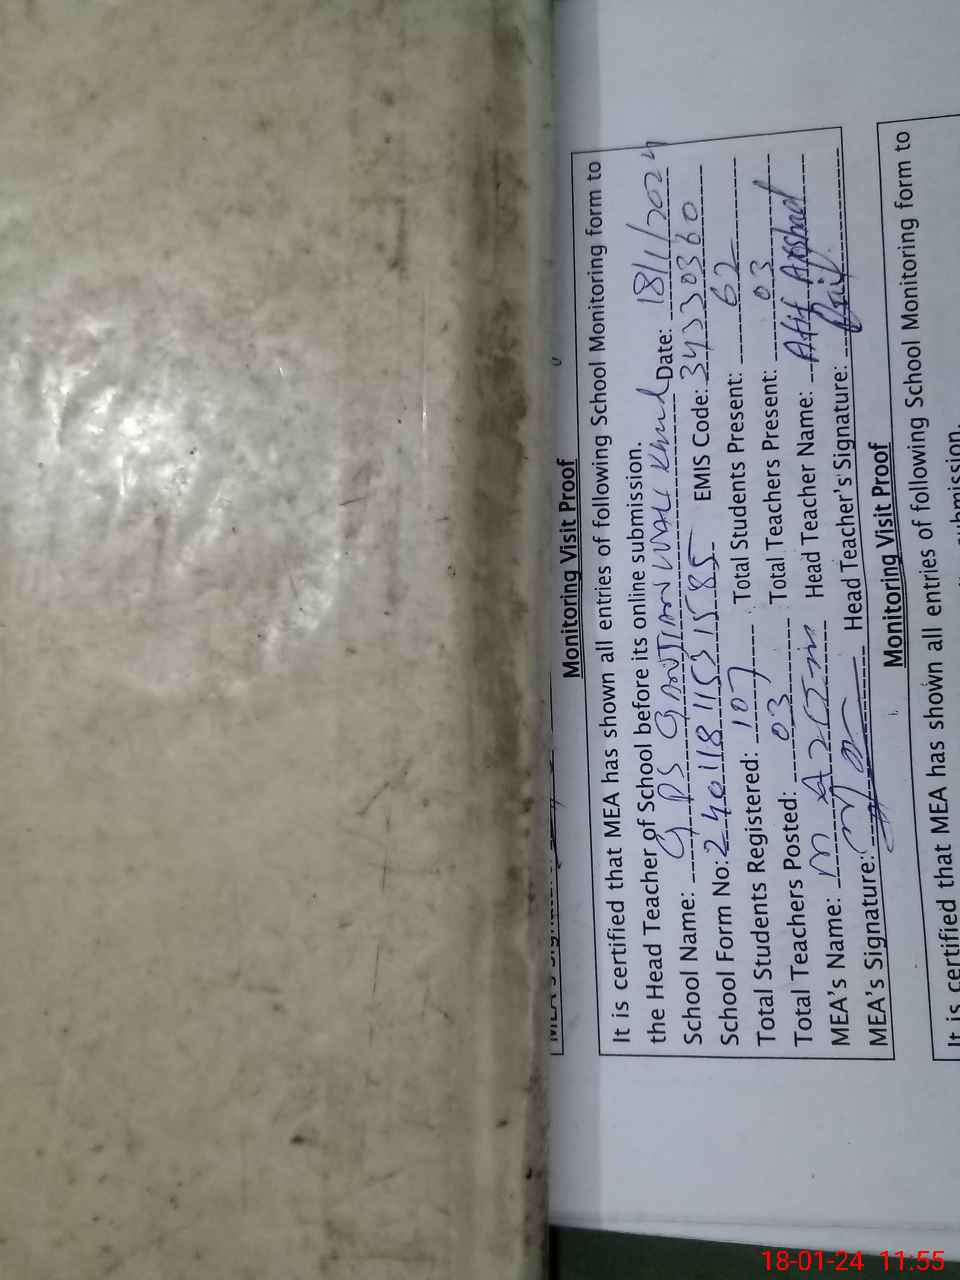 Monitoring Visit Proof
It is certified that MEA has shown all entries of following School Monitoring form to
the Head Teacher of School before its online submission.
School Name: GPS Date: 18/1/2024
School Form No: 2401181153 1585 EMIS Code: 34330360
Total Students Registered: 107 Total Students Present: 62
Total Teachers Posted: 03 Total Teachers Present: 03
MEA's Name: M Azeem Head Teacher Name: Atif Arshad
MEA's Signature: Head Teacher's Signature:
Monitoring Visit Proof
It is certified that MEA has shown all entries of following School Monitoring form to
18-01-24 11:55